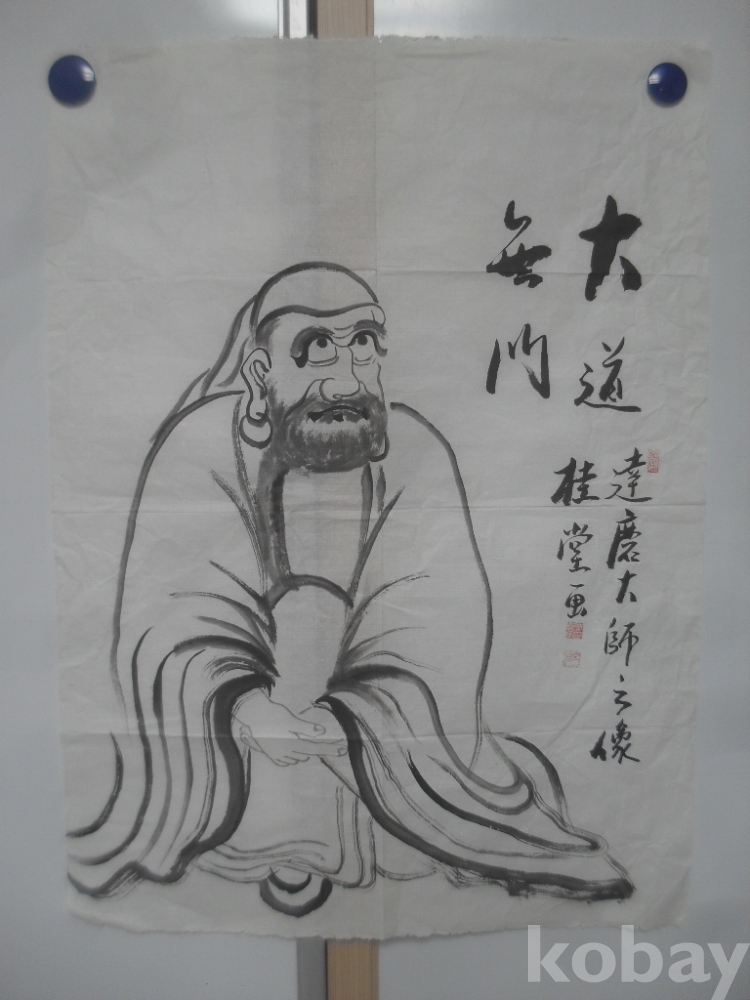 大道
無門
達磨大師之像
桂堂画
kobay